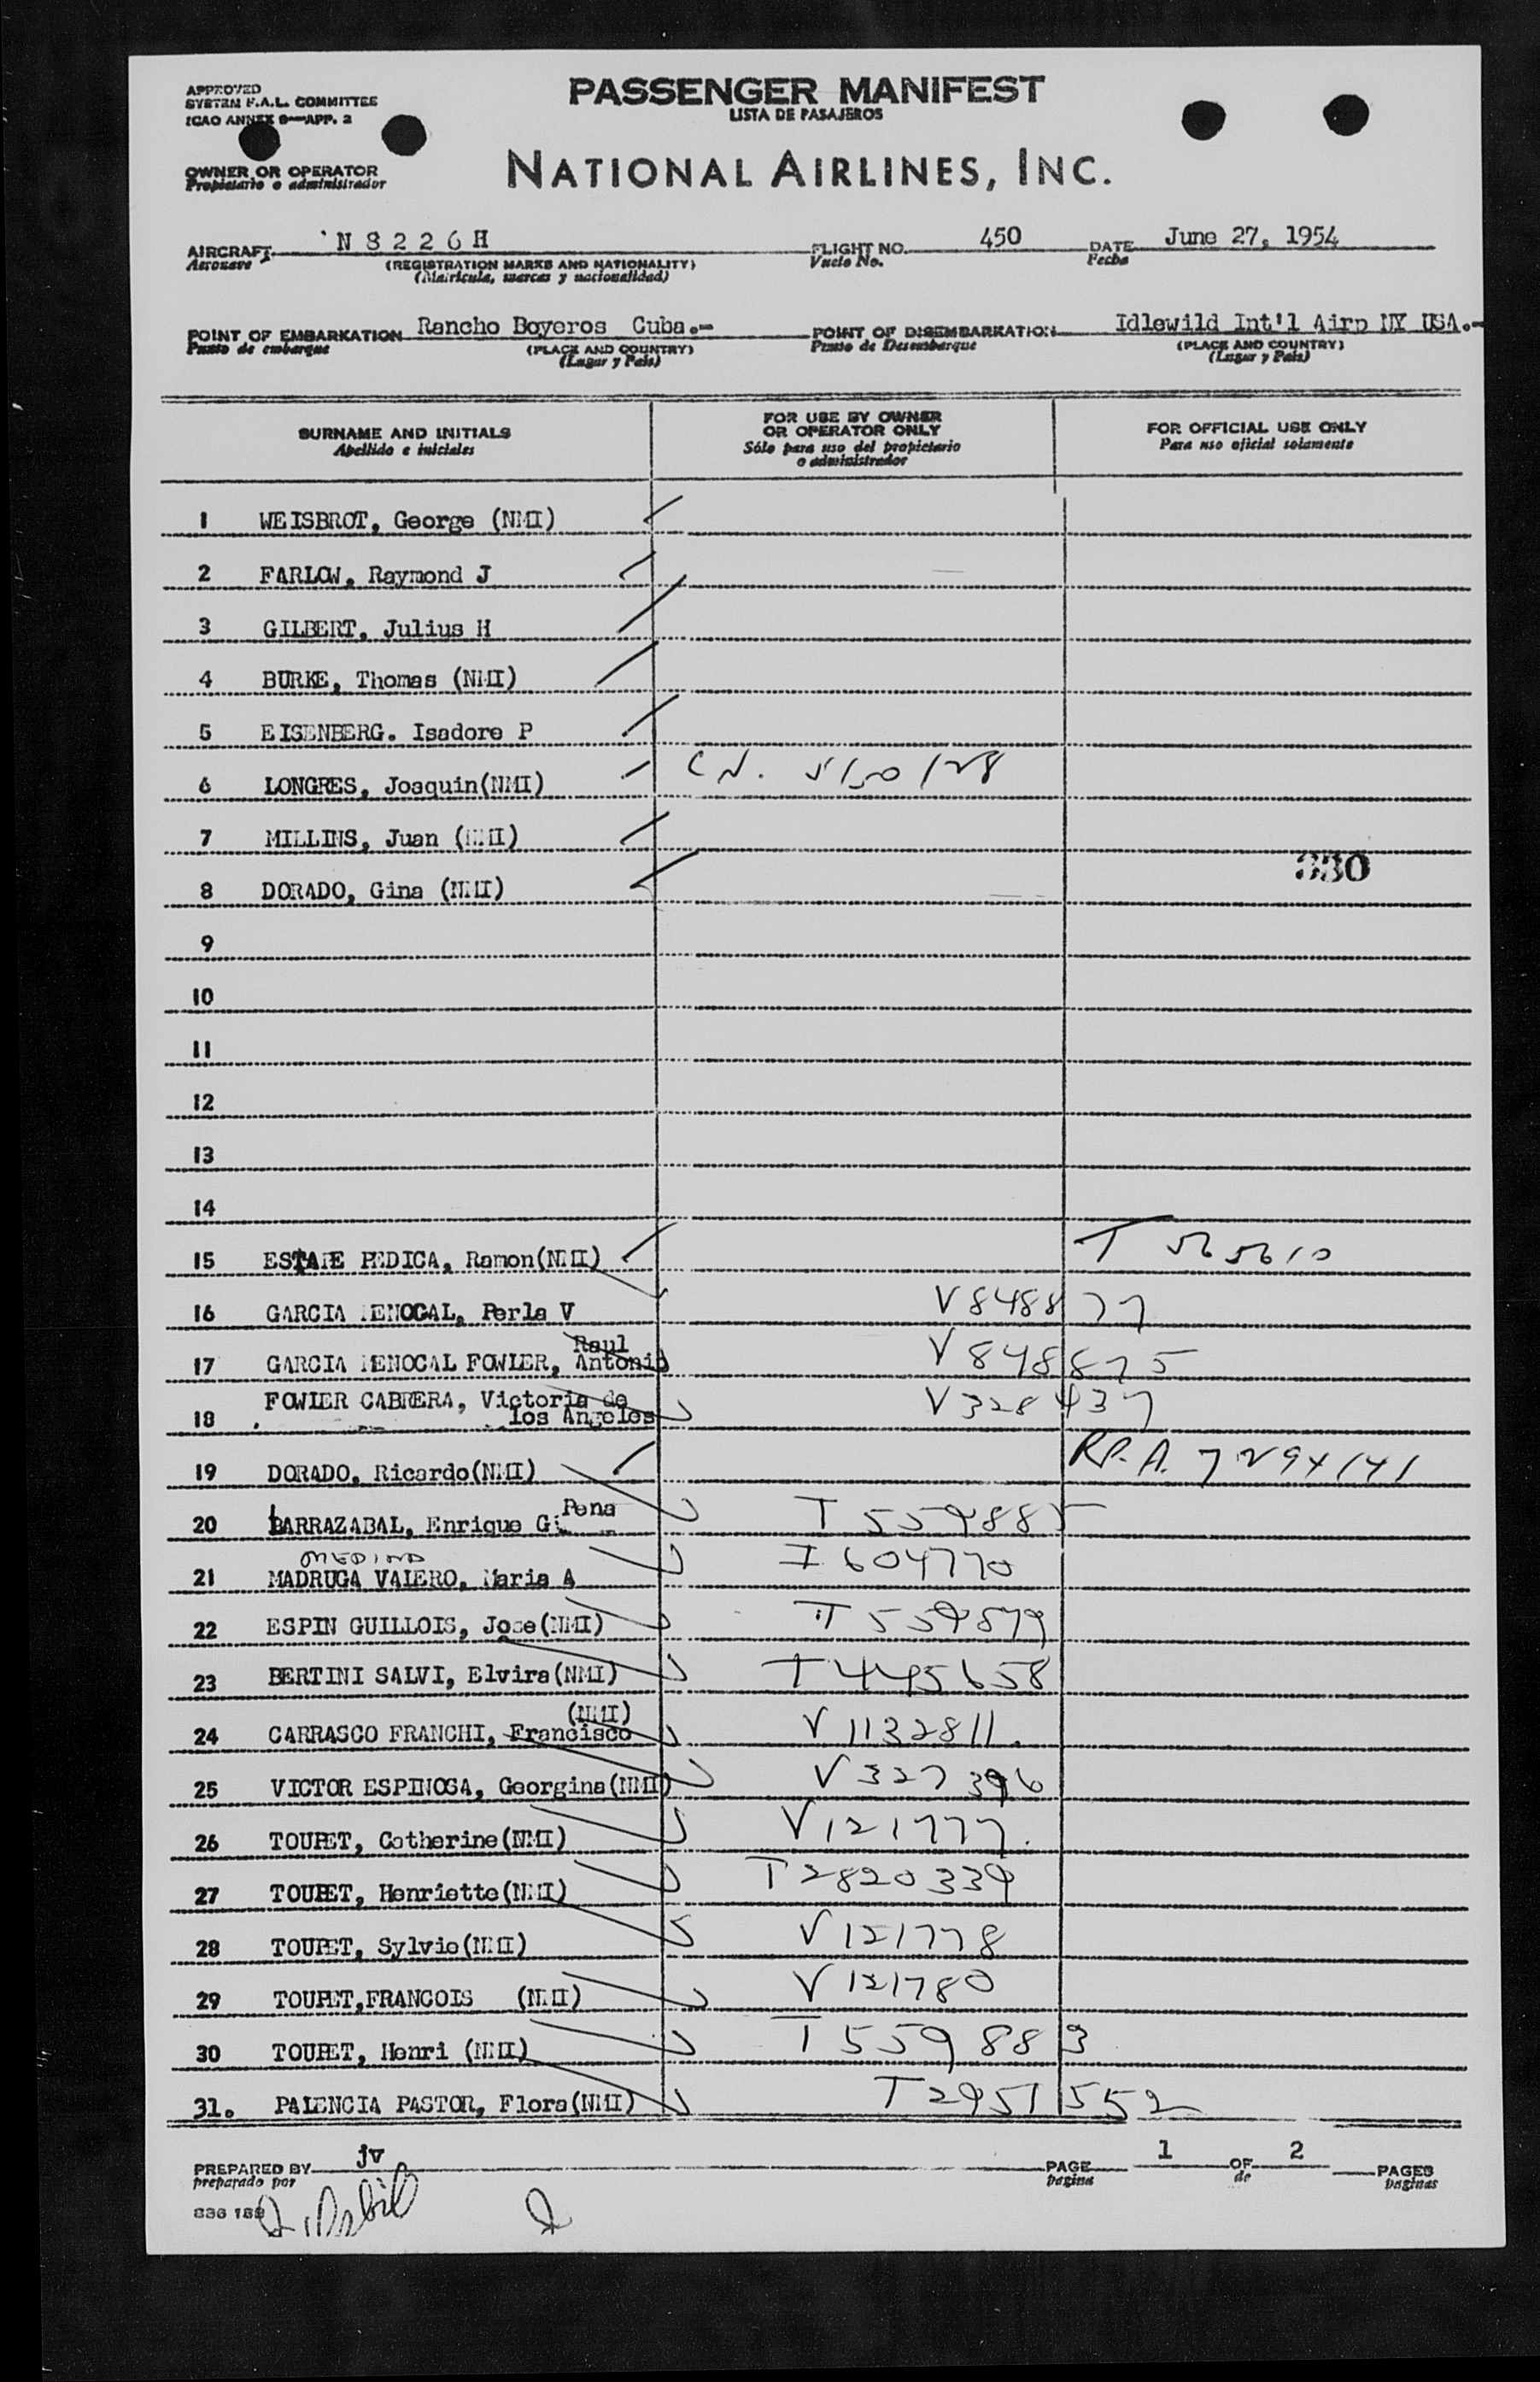 APPROVED
SYSTEM F.A.L. COMMITTEE
ICAO ANNEX 9—APP. 2
PASSENGER MANIFEST
LISTA DE PASAJEROS
OWNER OR OPERATOR
Propietario o administrador
NATIONAL AIRLINES, INC.
AIRCRAFT N 8 2 2 6 H FLIGHT NO. 450 DATE June 27, 1954
Aeronave (REGISTRATION MARKS AND NATIONALITY) Vuelo No. Fecha
(Matricula, marcas y nacionalidad)
POINT OF EMBARKATION Rancho Boyeros Cuba.- POINT OF DISEMBARKATION Idlewild Int'l Airp NY USA.-
Punto de embarque (PLACE AND COUNTRY) Punto de Desembarque (PLACE AND COUNTRY)
(Lugar y Pais) (Lugar y Pais)
SURNAME AND INITIALS
Apellido e iniciales
FOR USE BY OWNER
OR OPERATOR ONLY
Sólo para uso del propietario
o administrador
FOR OFFICIAL USE ONLY
Para uso oficial solamente
1 WEISBROT, George (NMI)
2 FARLOW, Raymond J
3 GILBERT, Julius H
4 BURKE, Thomas (NMI)
5 EISENBERG. Isadore P
6 LONGRES, Joaquin(NMI)
7 MILLINS, Juan (NMI)
330
8 DORADO, Gina (NMI)
9
10
11
12
13
14
15 ESTAPE PEDICA, Ramon(NMI) T 565610
16 GARCIA MENOCAL, Perla V V848877
17 GARCIA MENOCAL FOWLER, Raul Antonio V848875
18 FOWLER CABRERA, Victoria de los Angeles V328437
19 DORADO, Ricardo(NMI)
20 BARRAZABAL, Enrique G Pena T 559885
MEDINA
21 MADRUGA VALERO, Maria A I 604770
22 ESPIN GUILLOIS, Jose(NMI) T 559879
23 BERTINI SALVI, Elvira(NMI) T445658
24 CARRASCO FRANCHI, Francisco (NMI) V 1132811.
25 VICTOR ESPINOSA, Georgina(NMI) V327396
26 TOUPET, Catherine(NMI) V121777.
27 TOUPET, Henriette(NMI) T2820339
28 TOUPET, Sylvie(NMI) V121778
29 TOUPET,FRANCOIS (NMI) V121780
30 TOUPET, Henri (NMI) T559883
31. PALENCIA PASTOR, Flora(NMI) T2951552
PREPARED BY jv PAGE 1 OF 2 PAGES
preparado por pagina de paginas